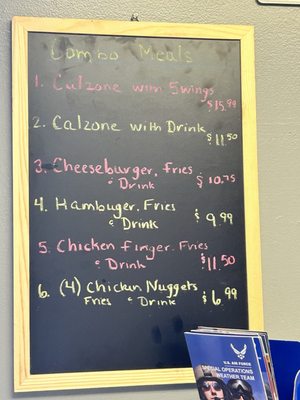 Combo Meals
1. Calzone with 5 wings
$15.99
2. Calzone with Drink
$11.50
3. Cheeseburger. Fries
& Drink $10.75
4. Hambuger. Fries
& Drink $9.99
5. Chicken finger. Fries
& Drink $11.50
6. (4) Chicken Nuggets
Fries & Drink $6.99
U.S. AIR FORCE
SPECIAL OPERATIONS
WEATHER TEAM